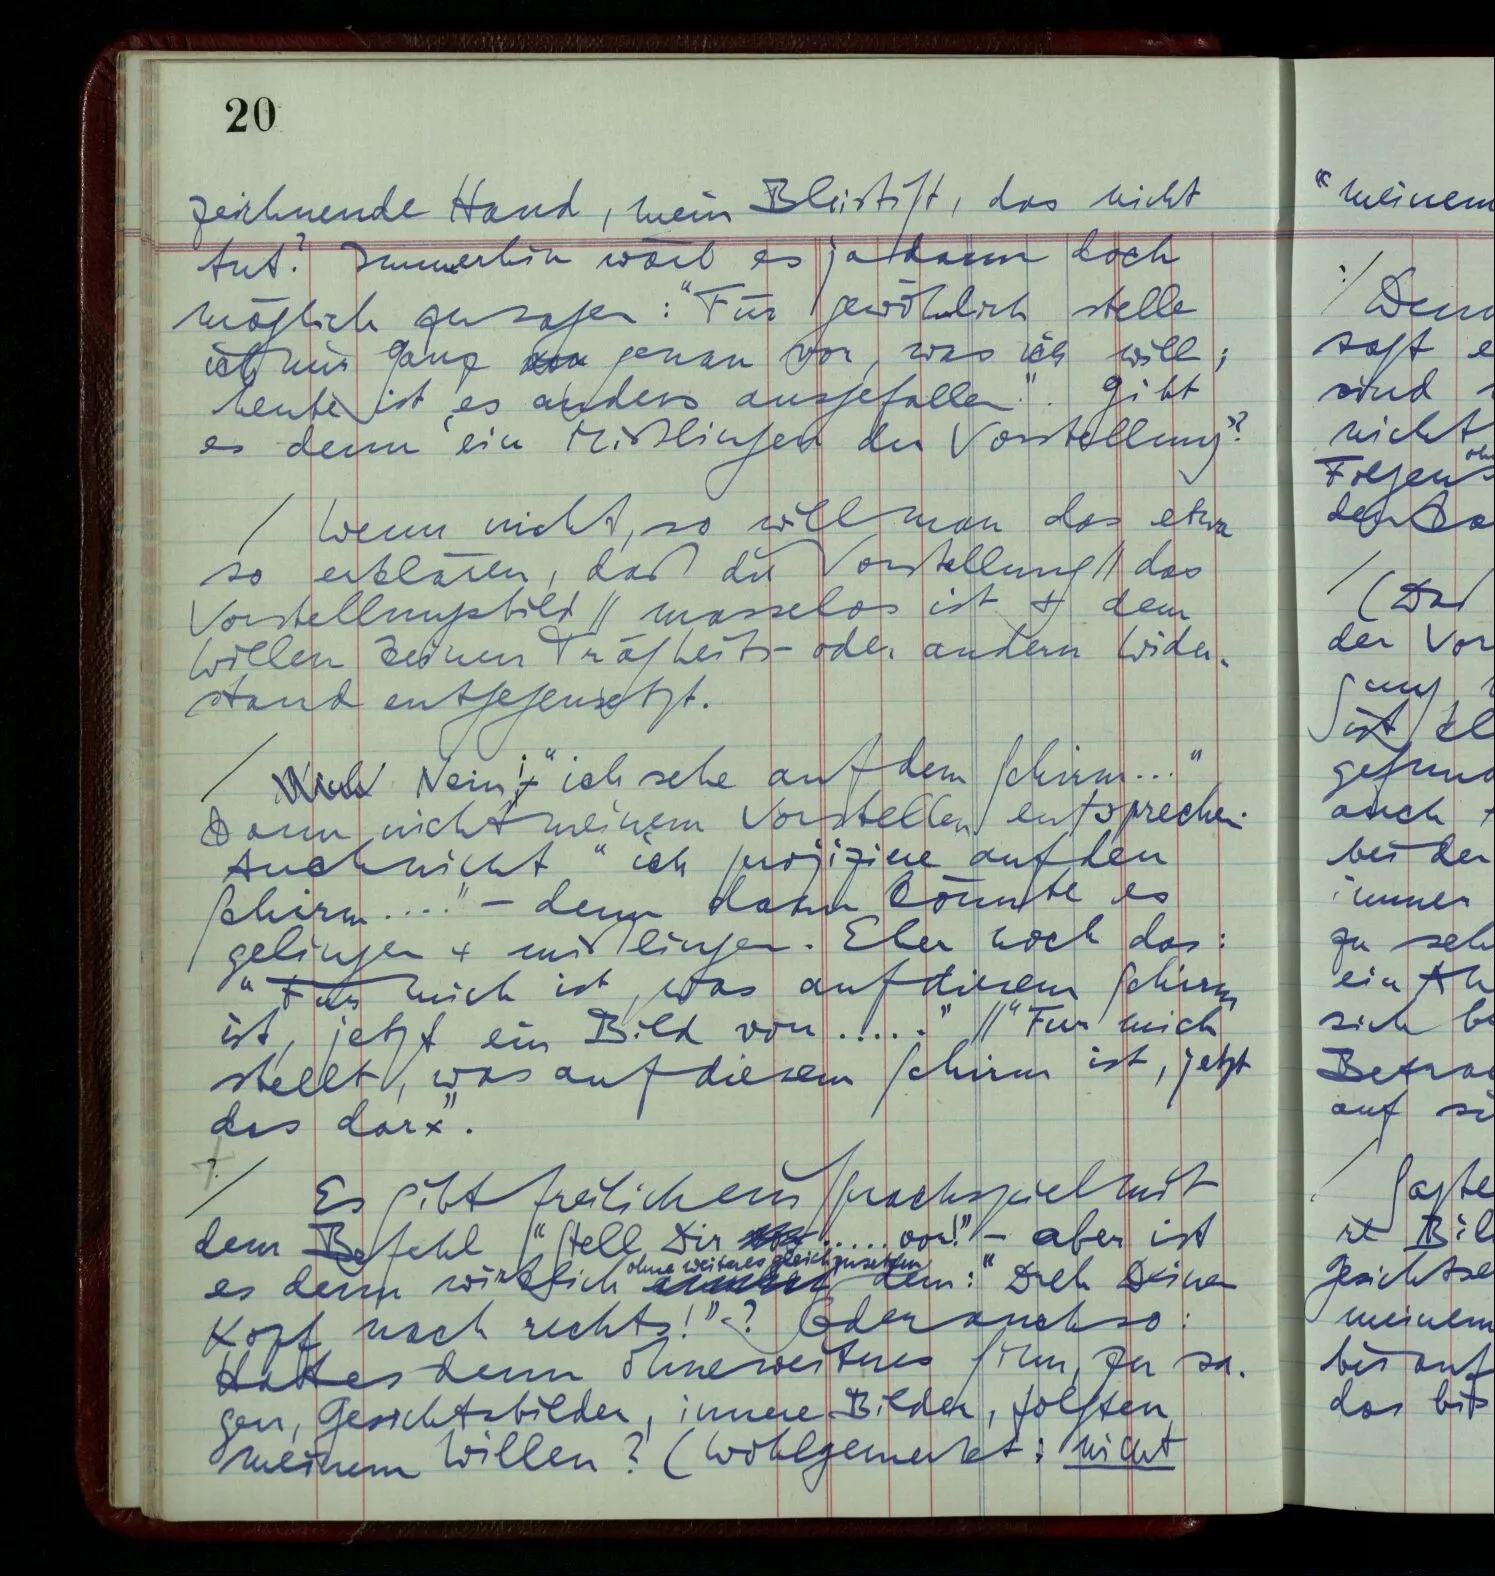 20
zeichnende Hand, mein Bleistift, das nicht
tut? Immerhin wäre es ja dann doch
möglich zu sagen: "Für gewöhnlich stelle
ich mir ganz genau vor, was ich will;
heute ist es anders ausgefallen". Gibt
es denn 'ein Mißlingen der Vorstellung'?
/ Wenn nicht, so will man das etwa
so erklären, daß die Vorstellung // das
Vorstellungsbild // masselos ist + dem
Willen keinen Trägheits- oder andern Wider-
stand entgegensetzt.
/ Nein! "ich sehe auf dem Schirm..."
Kann nicht meinem Vorstellen entsprechen.
Auch nicht "ich projiziere auf den
Schirm...." – denn dann könnte es
gelingen + mißlingen. Eher noch das:
"Für mich ist, was auf diesem Schirm
ist, jetzt ein Bild von ....." // "Für mich
stellt, was auf diesem Schirm ist, jetzt
das dar".
? / Es gibt freilich ein Sprachspiel mit
dem Befehl "Stell Dir ..... vor!" – aber ist
ohne weiteres gleichzusetzen
es denn wirklich dem: "Dreh Deinen
Kopf nach rechts!" –? Oder auch so:
Hat es denn ohne weiteres Sinn, zu sa-
gen, Gesichtsbilder, innere Bilder, folgten
meinem Willen? (Wohlgemerkt: nicht
"meinem
/ Denn
sagt e
sind
nicht
Folgen
/ (Daß
der Vor
ist kl
gefun
auch
bei der
immer
zu seh
ein
sich be
Betrac
auf si
/ Sagte
Bil
Gesichtse
meinem
bis auf
das bis